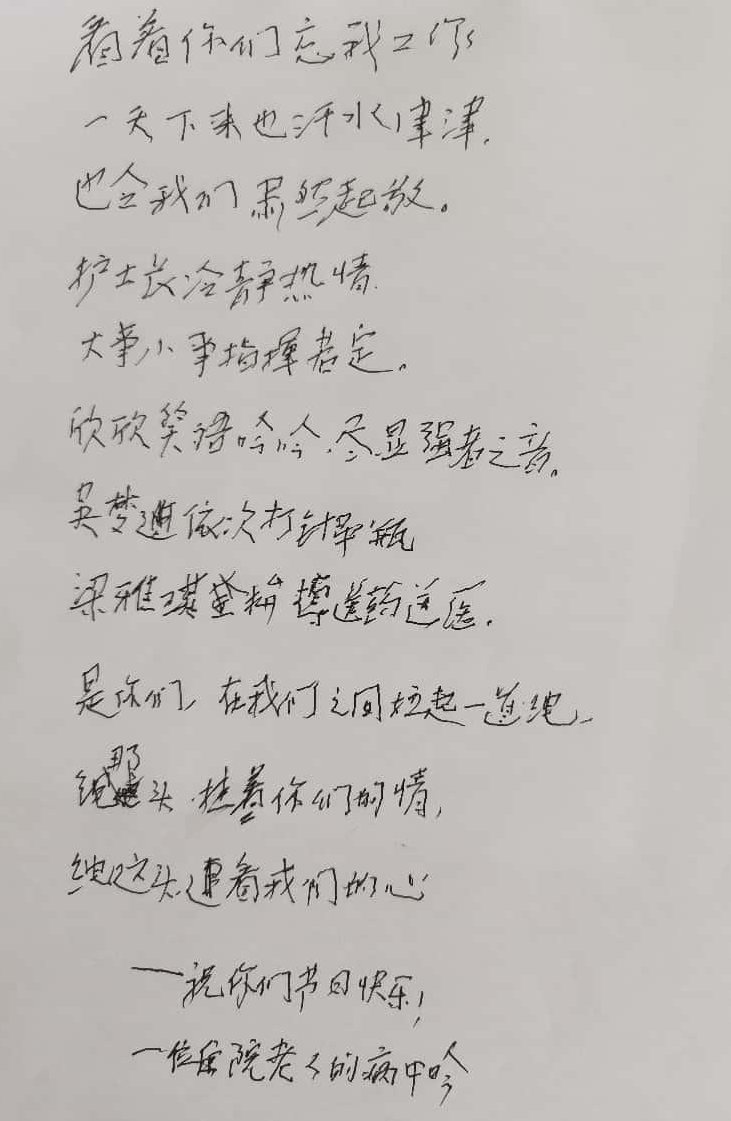 看着你们忘我工作
一天下来也汗水津津,
也令我们肃然起敬。
护士长冷静热情.
大事小事指挥若定。
欣欣笑语吟吟.尽显强者之音。
吴梦迪依次打针挂瓶
梁雅琪 送药送医.
是你们,在我们之间拉起一道绳,
绳那头.挂着你们的情,
绳这头连着我们的心
——祝你们节日快乐!
一位住院老人的病中吟